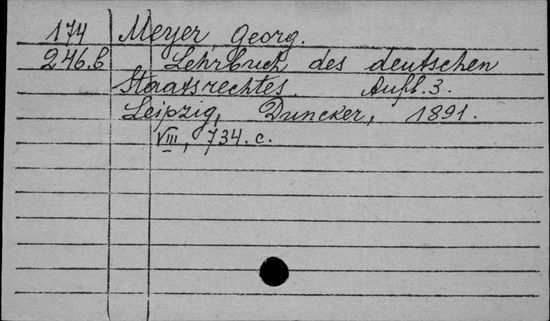 174 Meyer, Georg.
246.b Lehrbuch des deutschen
Staatsrechtes. Aufl. 3.
Leipzig, Duncker, 1891.
VIII, 734. c.